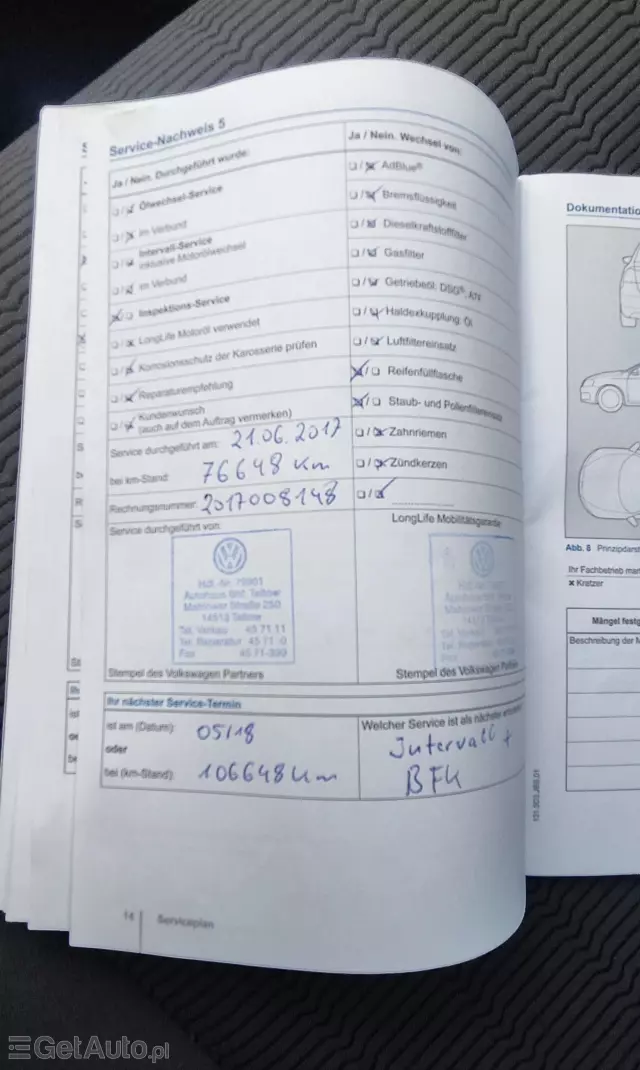 Service-Nachweis 5
Ja / Nein. Durchgeführt wurde:
Ölwechsel-Service
im Verbund
Intervall-Service
inklusive Motorölwechsel
im Verbund
Inspektions-Service
LongLife Motoröl verwendet
Korrosionsschutz der Karosserie prüfen
Reparaturempfehlung
Kundenwunsch
(auch auf dem Auftrag vermerken)
Service durchgeführt am: 21.06.2017
bei km-Stand: 76648 Km
Rechnungsnummer: 2017008148
Service durchgeführt von:
Hdl.-Nr.
Autohaus
Teltow
14513 Teltow
Tel. Verkauf 45 71 11
Tel. Reparatur 45 71 0
Fax 45 71-399
Stempel des Volkswagen Partners
Ja / Nein. Wechsel von:
AdBlue®
Bremsflüssigkeit
Dieselkraftstofffilter
Gasfilter
Getriebeöl: DSG®,
Haldexkupplung: Öl
Luftfiltereinsatz
Reifenfüllflasche
Staub- und Pollenfiltereinsatz
Zahnriemen
Zündkerzen
LongLife Mobilitätsgarantie
Stempel des Volkswagen
Ihr nächster Service-Termin
ist am (Datum): 05/18
oder
bei (km-Stand): 106648 Km
Welcher Service ist als nächster
Intervall +
BFK
14 Serviceplan
Dokumentatio
Abb. 8 Prinzipdarst
Ihr Fachbetrieb mar
× Kratzer
Mängel festg
Beschreibung der M
GetAuto.pl